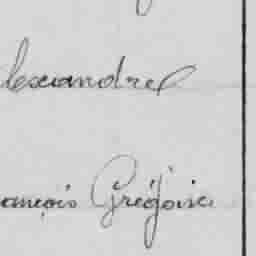 lexandre
ançois Grégoire